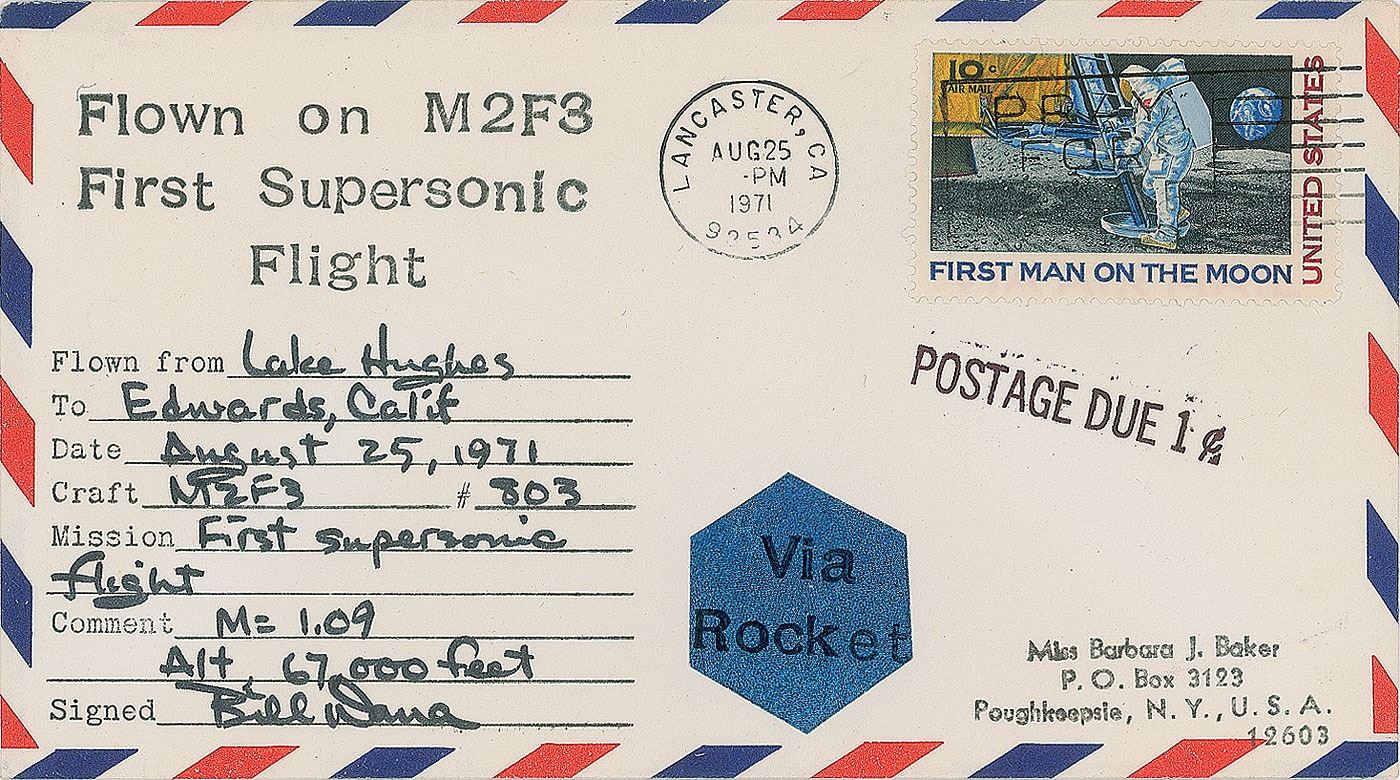 Flown on M2F3
First Supersonic
Flight
LANCASTER, CA
AUG 25
-PM
1971
93534
10c
AIR MAIL
UNITED STATES
FIRST MAN ON THE MOON
POSTAGE DUE 1¢
Flown from Lake Hughes
To Edwards, Calif
Date August 25, 1971
Craft M2F3 # 803
Mission First supersonic
flight
Comment M= 1.09
Alt 67,000 feet
Signed Bill Dana
Via
Rocket
Miss Barbara J. Baker
P. O. Box 3123
Poughkeepsie, N. Y., U. S. A.
12603